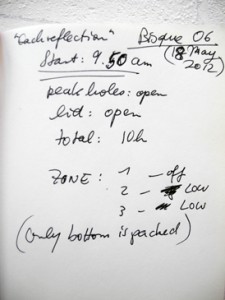 "Each reflection" Bisque 06
Start: 9.50 am (18 May 2012)
peak holes: open
lid: open
total: 10h
ZONE: 1 - off
2 - LOW
3 - LOW
(only bottom is packed)